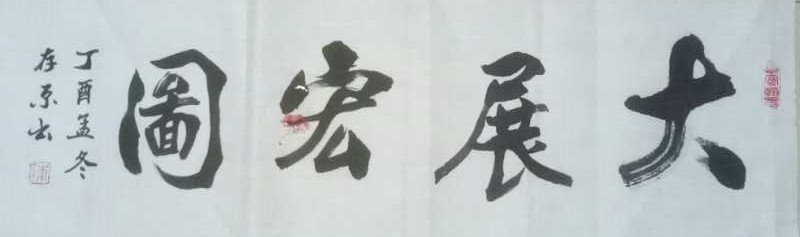 大展宏圖
丁酉孟冬
存京书